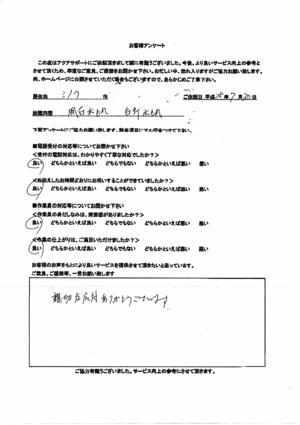 お客様アンケート
この度はアクアサポートにご依頼頂きまして誠に有難うございました。今後、より良いサービス向上の参考と
させて頂くため、率直なご意見、ご感想をお聞かせ下さい。お忙しい中、恐れ入りますがご協力お願い致します。
尚、ホームページに公開させていただく場合もございますので、あらかじめご了承下さい。
居住地 市 ご依頼日 平成 28年 7月 20日
依頼内容
下記アンケートにご協力お願い致します。該当項目に丸を付けて下さい。
■電話受付の対応等についてお聞かせ下さい
<受付の電話対応は、わかりやすく丁寧な対応でしたか?>
良い どちらかといえば良い どちらでもない どちらかといえば悪い 悪い
<お伝えしたお時間どおりにお伺いすることができていましたか?>
良い どちらかといえば良い どちらでもない どちらかといえば悪い 悪い
■作業員の対応等についてお聞かせ下さい
<作業員の身だしなみは、清潔感がありましたか?>
良い どちらかといえば良い どちらでもない どちらかといえば悪い 悪い
<作業の仕上がりは、ご満足いただけましたか?>
良い どちらかといえば良い どちらでもない どちらかといえば悪い 悪い
お客様のお声をもとにより良いサービスを提供させて頂きたいと思っています。
ご意見、ご感想等、一言お願い致します
親切な応対ありがとうございます
ご協力有難うございました。サービス向上の参考にさせて頂きます。